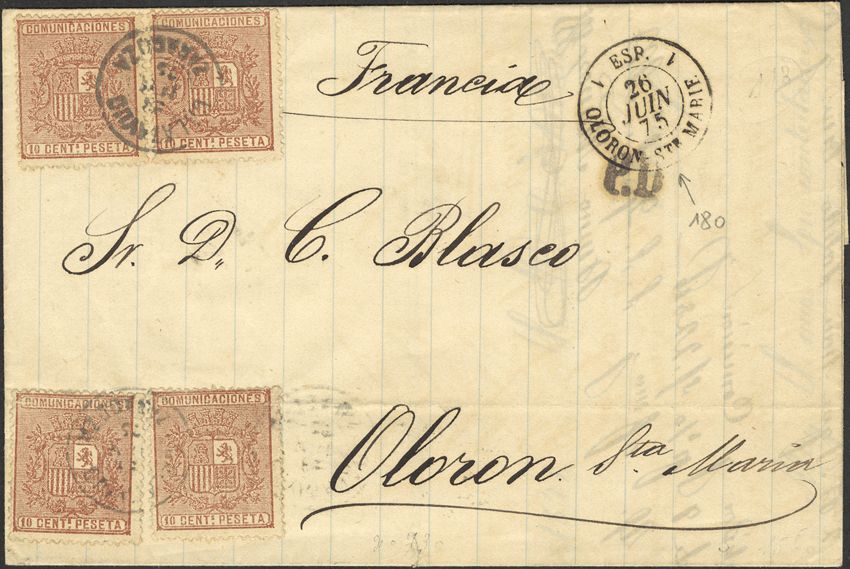 COMUNICACIONES
COMUNICACIONES
10 CENT.s PESETA
10 CENT.s PESETA
ZARAGOZA
Francia
1 ESP. 1
26
JUIN
75
OLORON-STE MARIE
P.D
180
Sr. D.,, C. Blasco
COMUNICACIONES
COMUNICACIONES
10 CENT.s PESETA
10 CENT.s PESETA
Oloron. Sta Maria